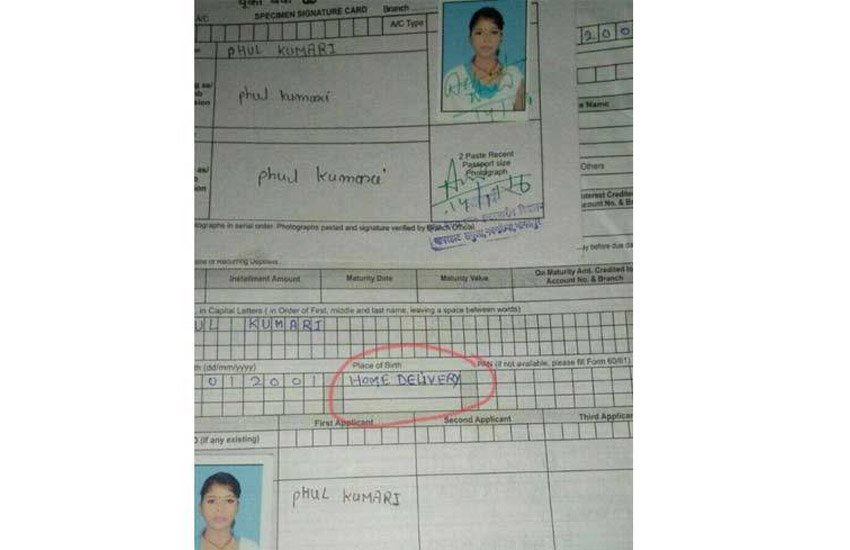 A/C
SPECIMEN SIGNATURE CARD Branch
A/C Type
PHUL KUMARI
phul kumari
phul kumari
2 Paste Recent
Passport size
Photograph
14/
Name
Others
Interest Credited
Account No. & B
ographs in serial order. Photographs pasted and signature verified by Branch Official
may before due da
Installment Amount Maturity Date Maturity Value On Maturity Amt. Credited to
Account No. & Branch
in Capital Letters ( in Order of First, middle and last name, leaving a space between words)
UL KUMARI
th (dd/mm/yyyy) Place of Birth PAN (if not available, please fill Form 60/61)
012001 HOME DELIVERY
First Applicant Second Applicant Third Applican
(If any existing)
PHUL KUMARI